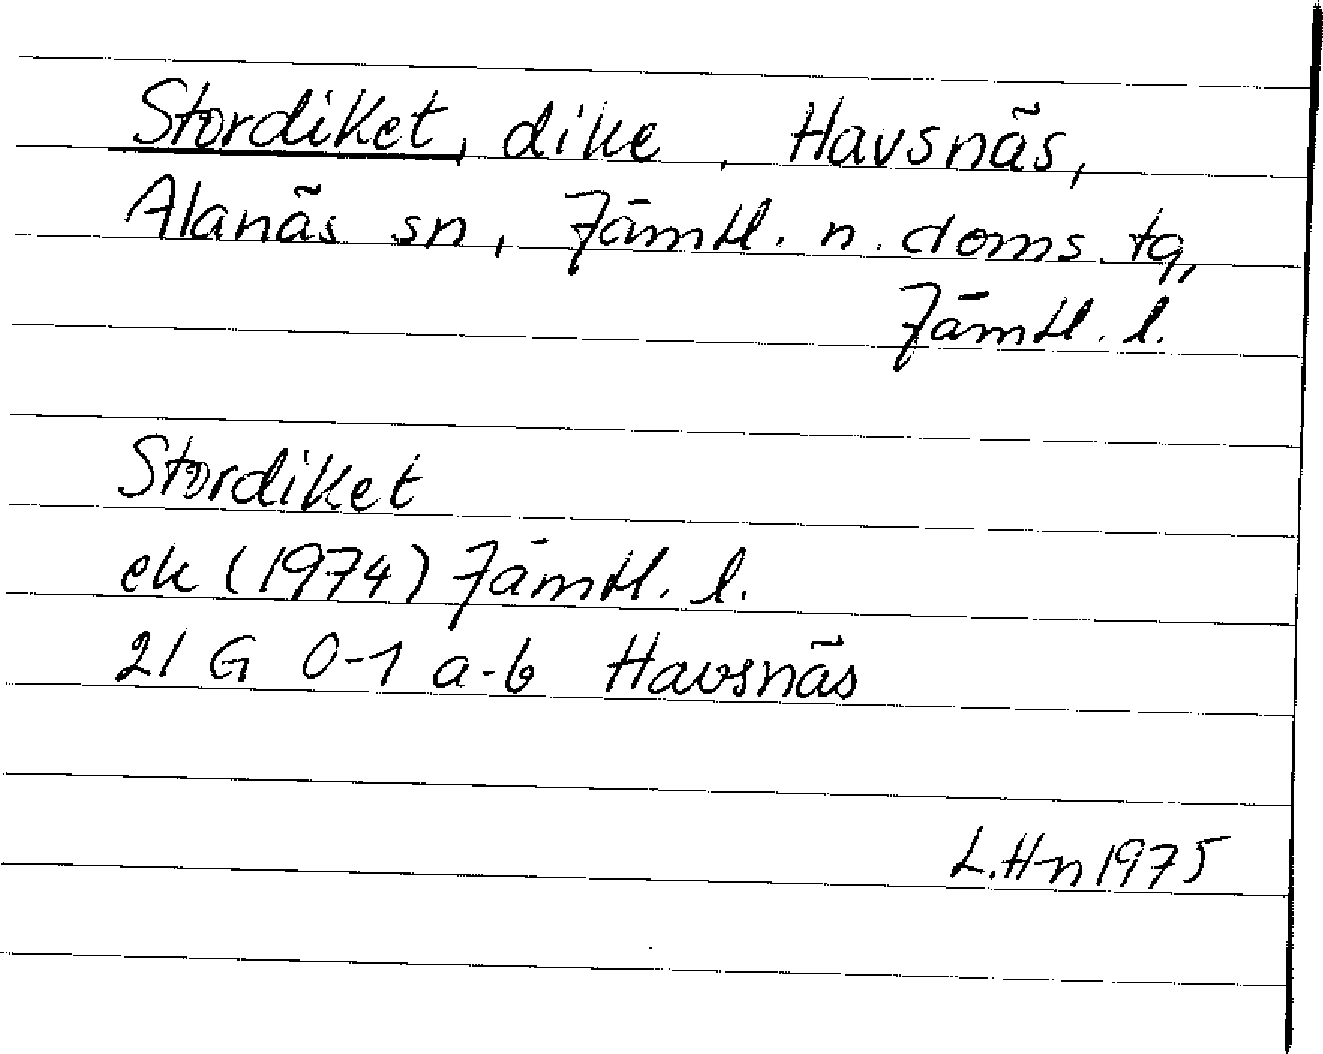 Stordiket, dike, Havsnäs,
Alanäs sn, Jämtl. n. doms. tg,
Jämtl. l.
Stordiket
ek (1974) Jämtl. l.
21 G 0-1 a-b Havsnäs
L.H-n 1975